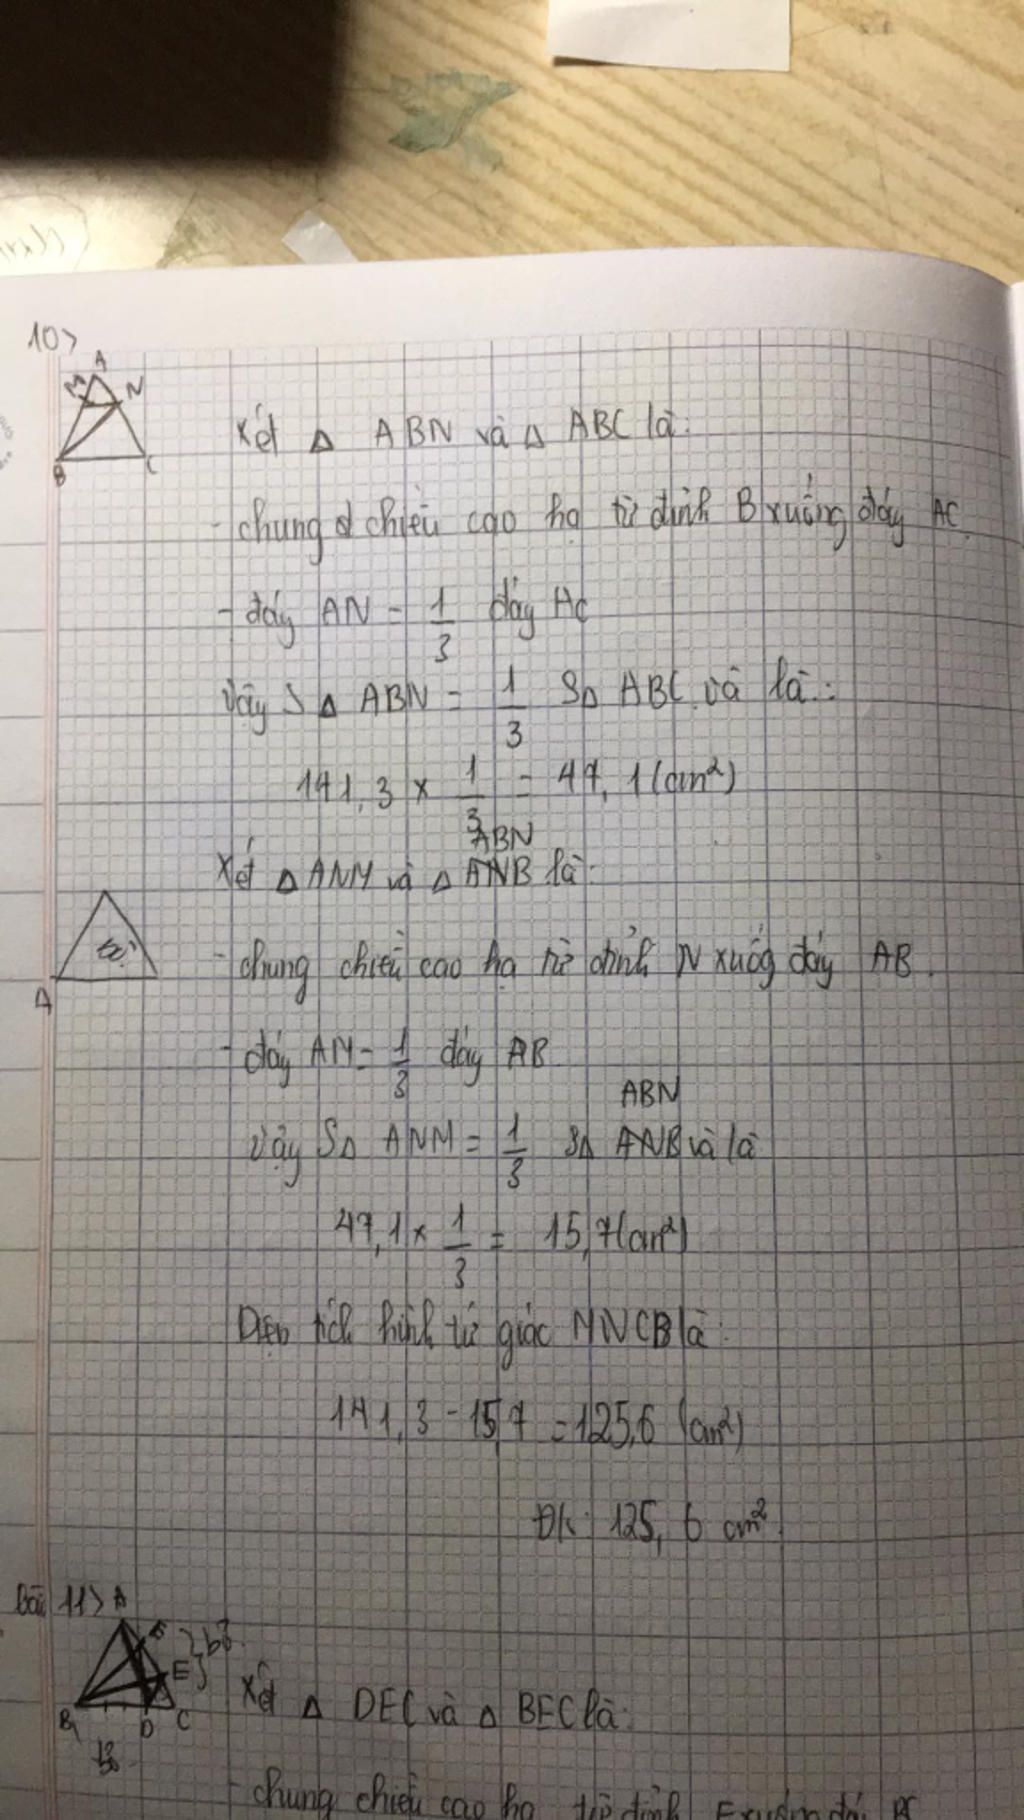 10>
A
M N
B C
Xét Δ ABN và Δ ABC là:
- chung chiều cao hạ từ đỉnh B xuống đáy AC.
- đáy AN = 1/3 đáy AC
Vậy S Δ ABN = 1/3 SΔ ABC và là:
141,3 x 1/3 = 47,1 (cm²)
ABN
Xét Δ ANM và Δ ANB là:
- chung chiều cao hạ từ đỉnh N xuốg đáy AB.
A
- đáy AM = 1/3 đáy AB
ABN
Vậy SΔ ANM = 1/3 SΔ ANB và là
47,1 x 1/3 = 15,7 (cm²)
Diện tích hình tứ giác MNCB là:
141,3 - 15,7 = 125,6 (cm²)
Đ/s: 125,6 cm²
Bài 11> A
E
B D C
Xét Δ DEC và Δ BEC là:
- chung chiều cao hạ từ đỉnh E xuống đáy BC